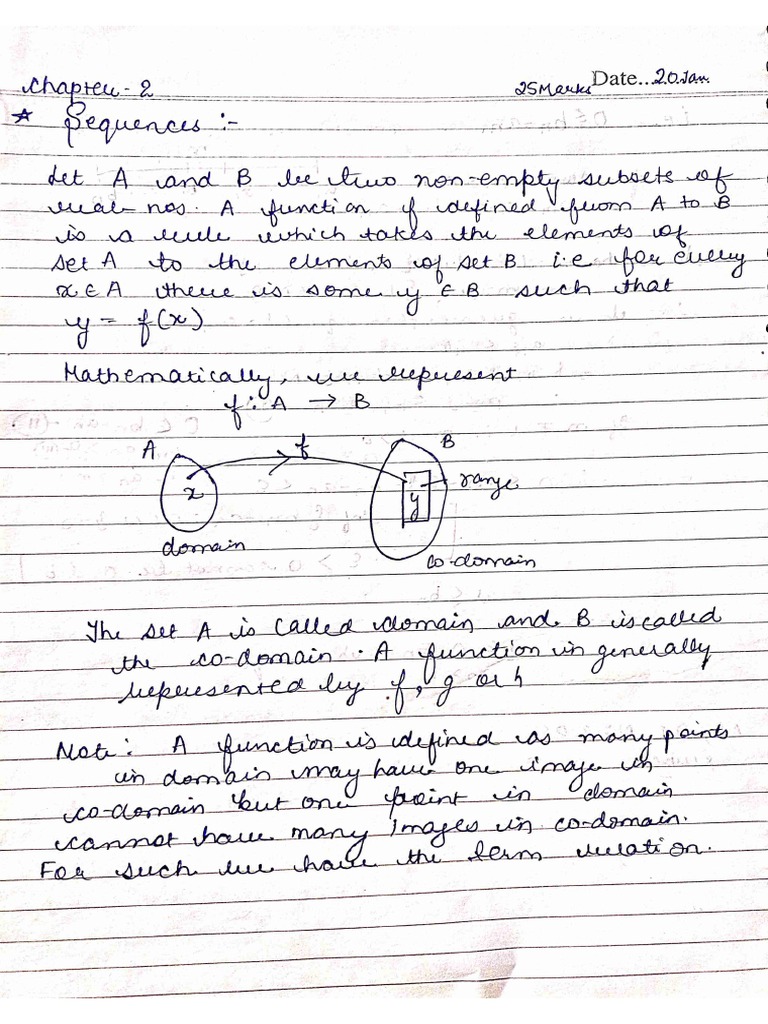 Chapter - 2
25 Marks Date...20 Jan.
* Sequences :-
Let A and B be two non-empty subsets of
real nos. A function f defined from A to B
is a rule which takes the elements of
set A to the elements of set B i.e for every
x ∈ A there is some y ∈ B such that
y = f(x)
Mathematically, we represent
f : A → B
A f B
x y range
domain
co-domain
The set A is called domain and B is called
the co-domain . A function in generally
represented by f, g or h
Note : A function is defined as many points
in domain may have one image in
co-domain but one point in domain
cannot have many images in co-domain.
For such we have the term relation.